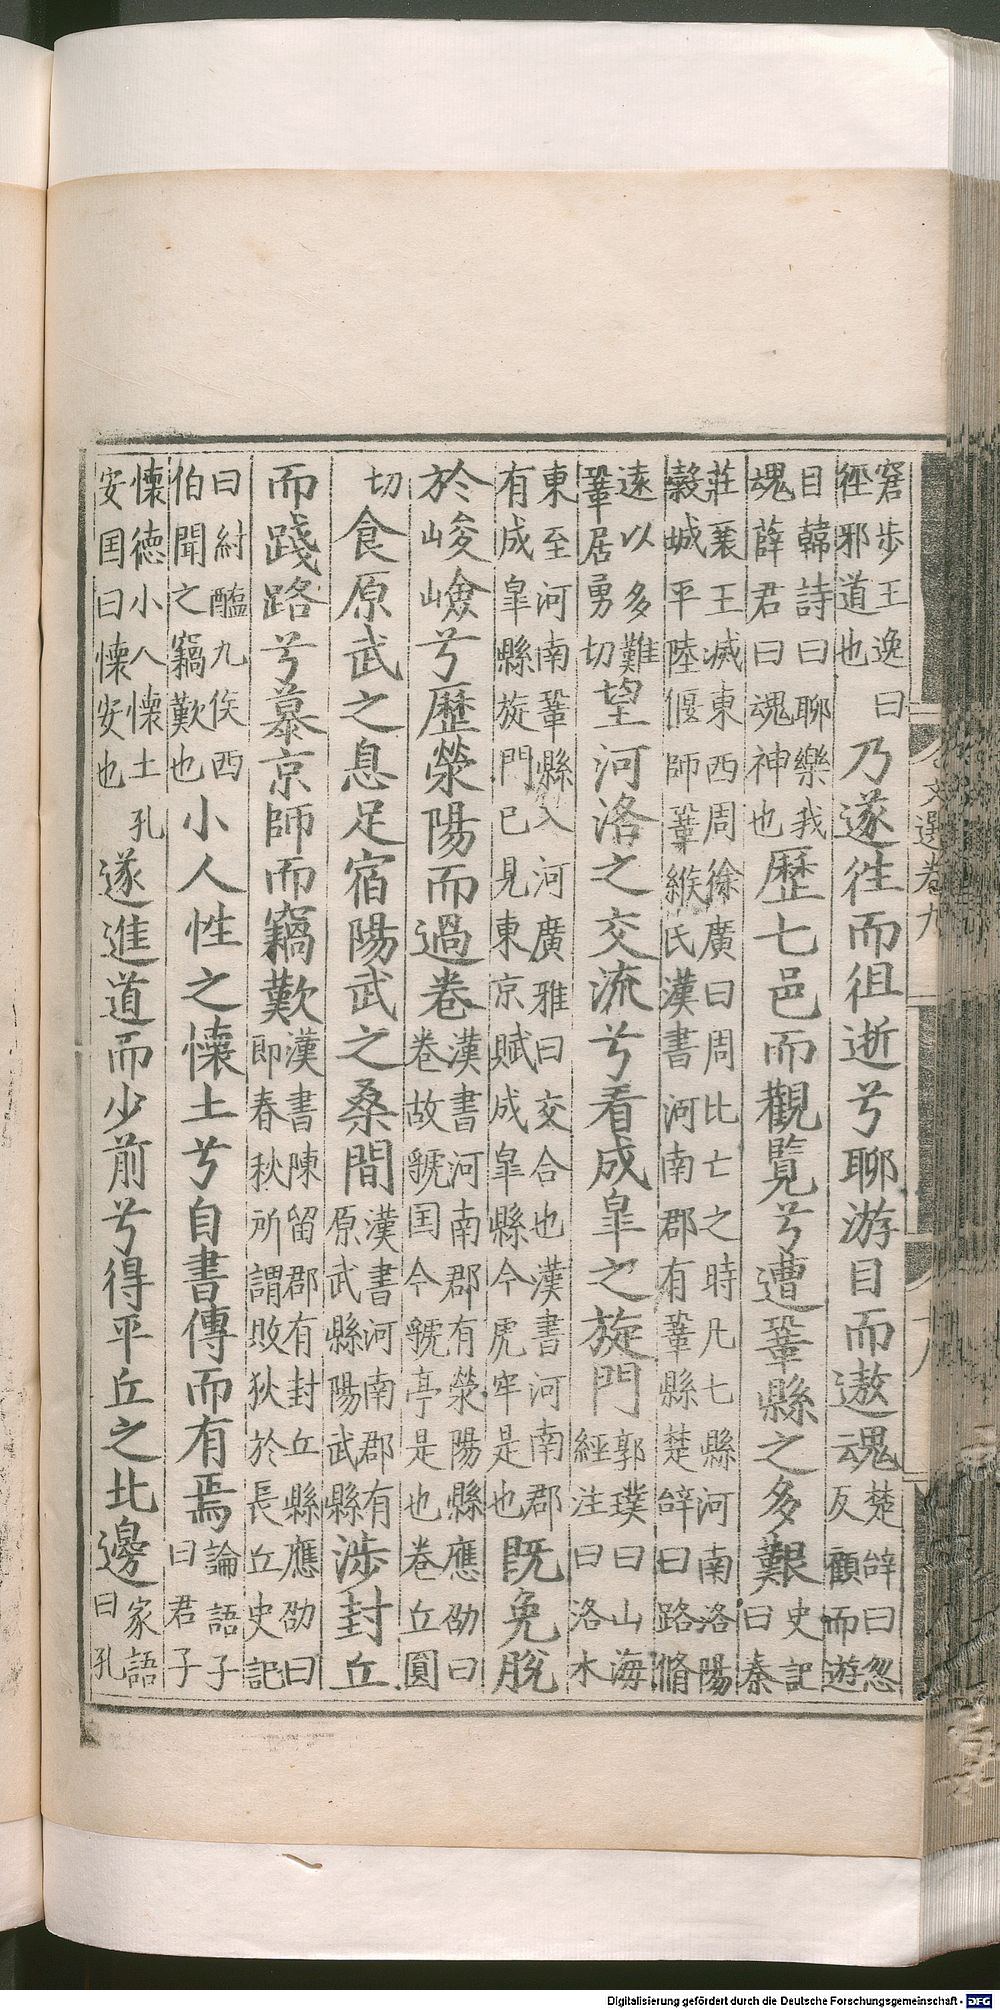 文選卷九
窘步王逸曰
徑邪道也
乃遂徃而徂逝兮聊游目而遨魂
楚辭曰忽
反顧而遊
目韓詩曰聊樂我
魂薛君曰魂神也
歷七邑而觀覽兮遭鞏縣之多艱
史記
曰秦
莊襄王滅東西周徐廣曰周比亡之時凡七縣河南洛陽
穀城平陸偃師鞏緱氏漢書河南郡有鞏縣楚辭曰路脩
遠以多難
鞏居勇切
望河洛之交流兮看成皐之旋門
郭璞曰山海
經注曰洛水
東至河南鞏縣入河廣雅曰交合也漢書河南郡
有成皐縣旋門已見東京賦成皐縣今虎牢是也
既免脫
於峻嶮兮歷滎陽而過卷
漢書河南郡有滎陽縣應劭曰
卷故虢囯今虢亭是也卷丘圓
切
食原武之息足宿陽武之桑間
漢書河南郡有
原武縣陽武縣
涉封丘
而踐路兮慕京師而竊歎
漢書陳留郡有封丘縣應劭曰
即春秋所謂敗狄於長丘史記
曰紂醢九侯西
伯聞之竊歎也
小人性之懷土兮自書傳而有焉
論語子
曰君子
懷德小人懷土孔
安囯曰懷安也
遂進道而少前兮得平丘之北邊
家語
曰孔
Digitalisierung gefördert durch die Deutsche Forschungsgemeinschaft - DFG